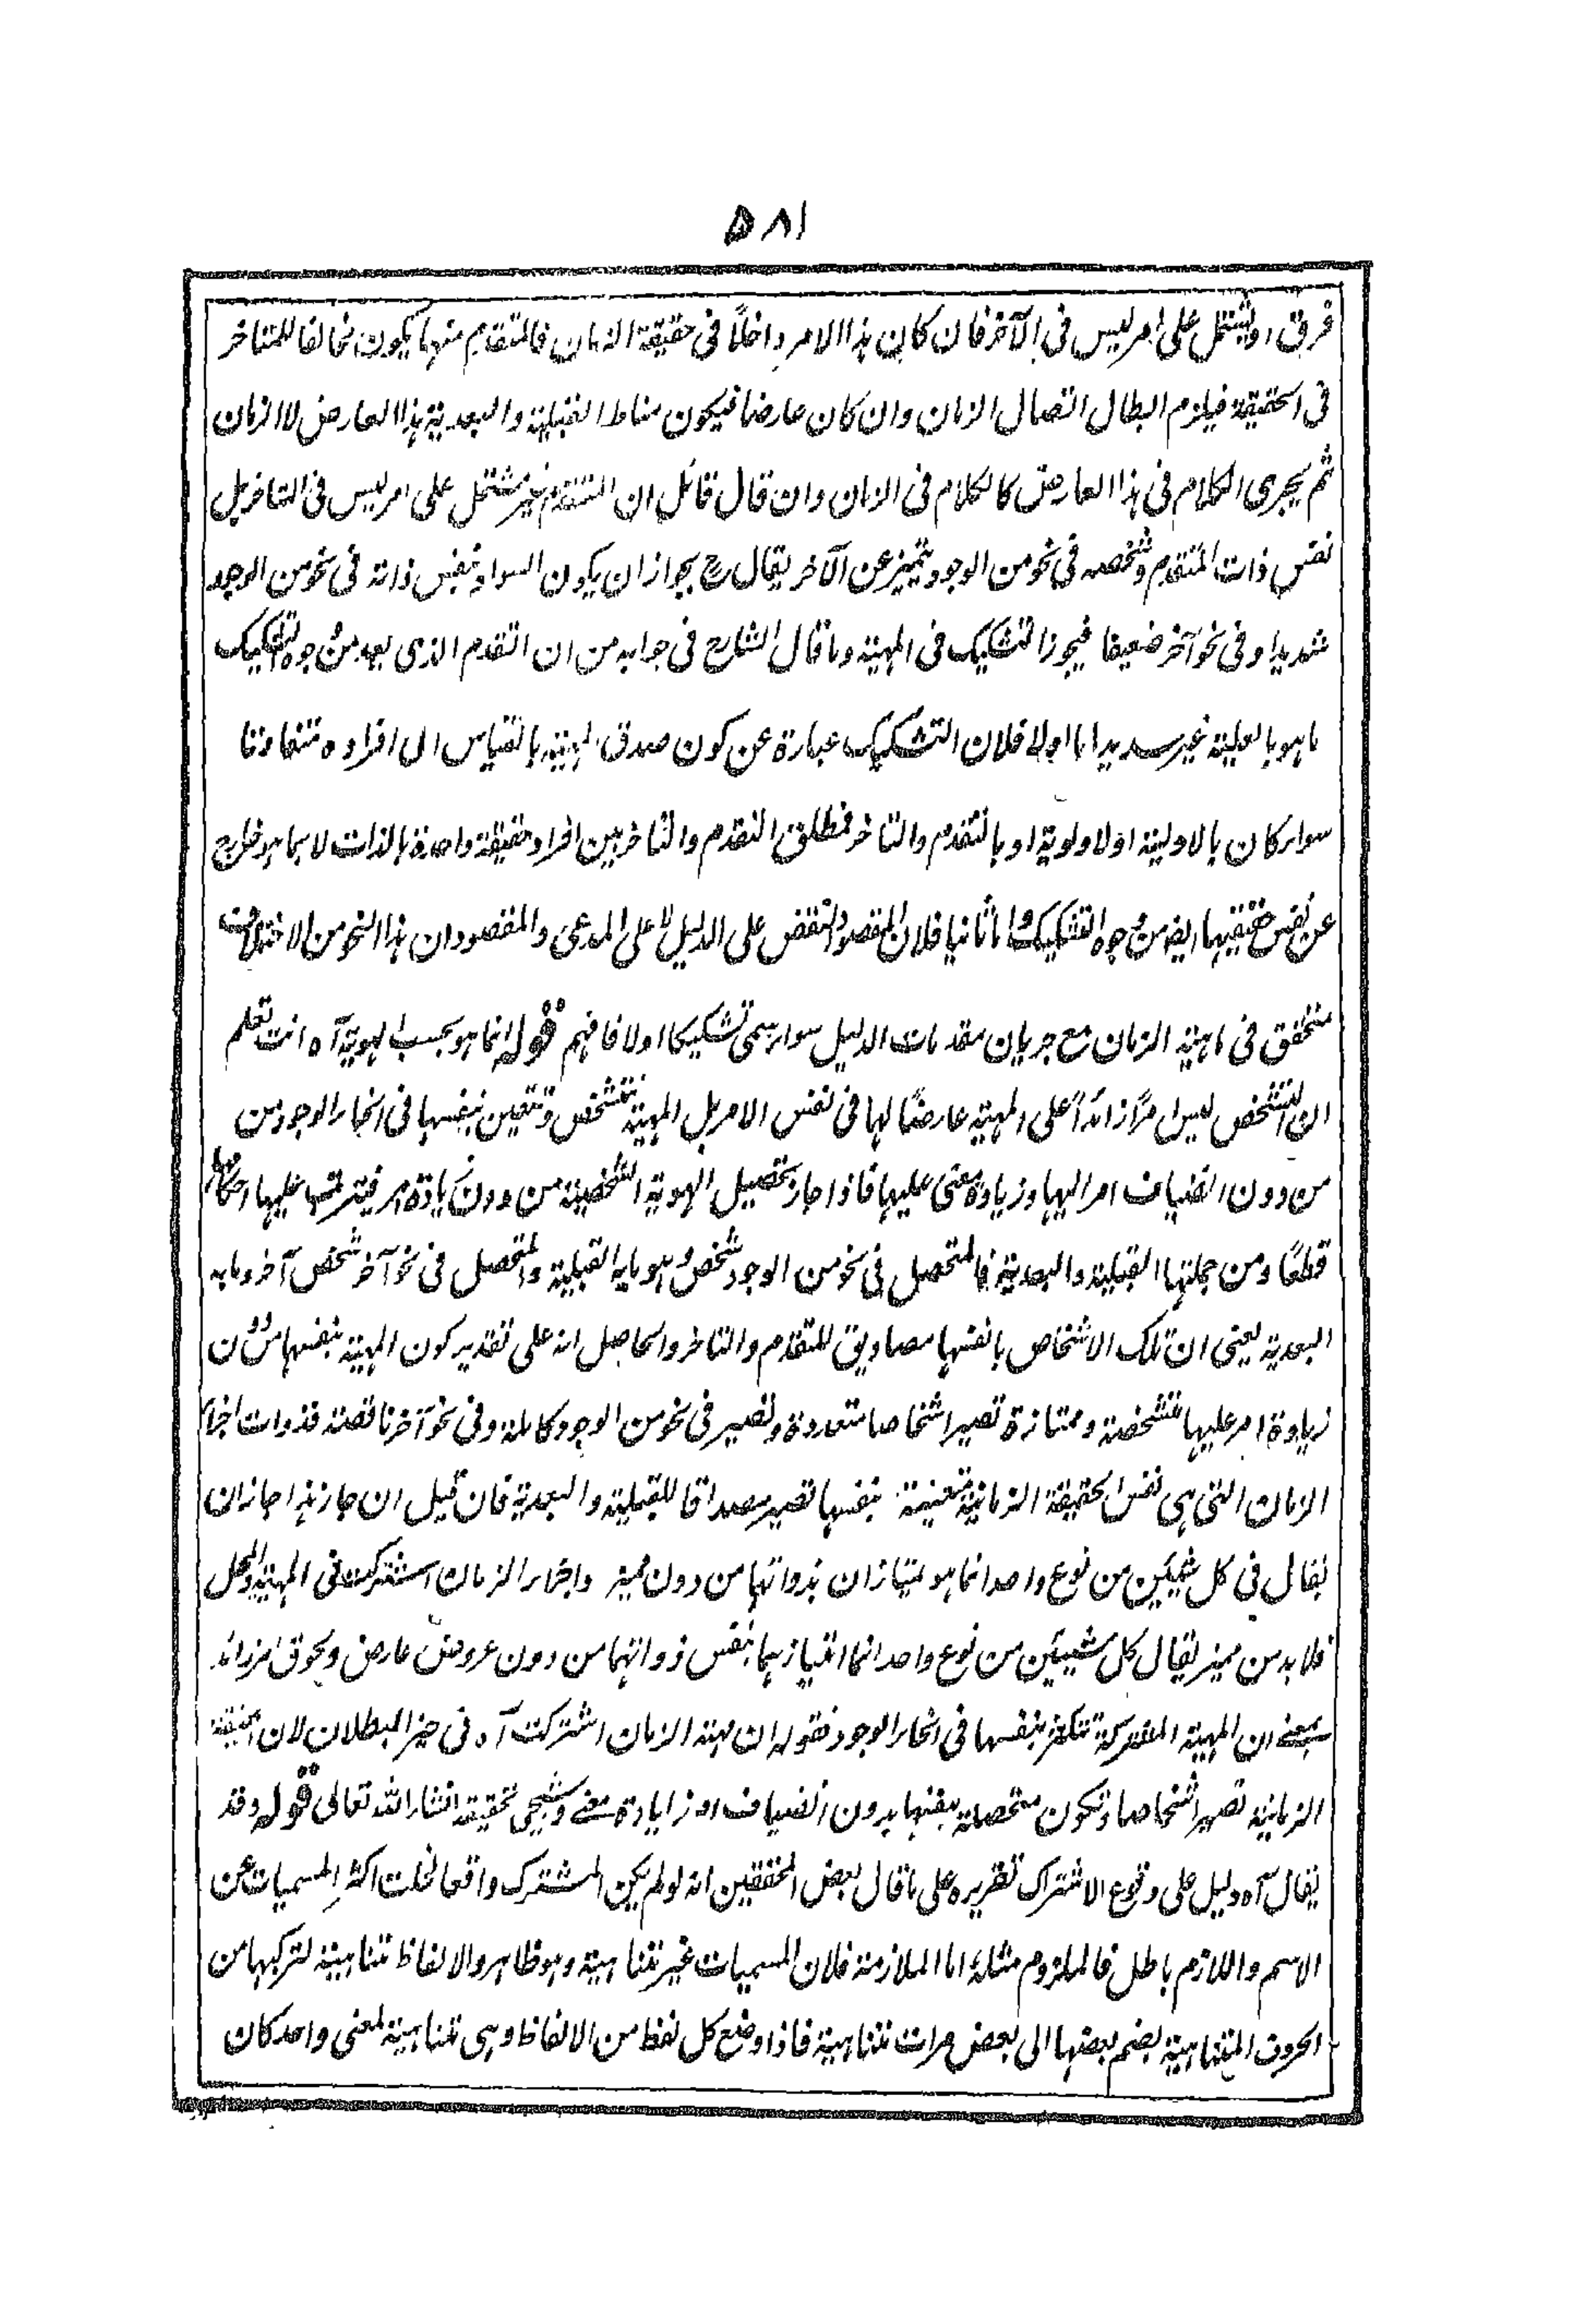 ٥٨١
فرق او يشتمل على امر ليس فى الآخر فان كان هذا الامر داخلاً فى حقيقة الزمان فالمتقدم منهما يكون مخالفا للمتاخر
فى الحقيقة فيلزم ابطال اتصال الزمان وان كان عارضا فيكون مناط القبلية والبعدية هذا العارض لا الزمان
ثم يجرى الكلام فى هذا العارض كالكلام فى الزمان وان قال قائل ان المتقدم غير مشتمل على امر ليس فى المتاخر بل
نفس ذات المتقدم وتشخصه فى نحو من الوجود يتميز عن الآخر يقال ح يجوز ان يكون السواد بنفس ذاته فى نحو من الوجود
شديدا وفى نحو آخر ضعيفا فيجوز التشكيك فى المهية وما قال الشارح فى جوابه من ان التقدم الذى يعد من وجوه التشكيك
ما هو بالعلية غير سديد اما اولا فلان التشكيك عبارة عن كون صدق المهية بالقياس الى افراده متفاوتا
سواء كان بالاولية او الاولوية او بالتقدم والتاخر فمطلق التقدم والتاخر بين افراد حقيقة واحدة بالذات لا بما هو خارج
عن نفس حقيقتها ايضا من وجوه التشكيك واما ثانيا فلان المقصود النقض على الدليل لا على المدعى والمقصود ان هذا النحو من الاختلاف
متحقق فى ماهية الزمان مع جريان مقدمات الدليل سواء سمى تشكيكا اولا فافهم قوله انما هو بحسب الهوية آه انت تعلم
ان التشخص ليس امرًا زائداً على المهية عارضًا لها فى نفس الامر بل المهية تتشخص وتتعين بنفسها فى انحاء الوجود من
من دون انضياف امر اليها وزيادة معنى عليها فاذا جاز تحصيل الهوية الشخصية من دون زيادة امر فيترتب عليها احكامها
قطعًا ومن جملتها القبلية والبعدية فالمتحصل فى نحو من الوجود شخص وهو ما به القبلية والمتحصل فى نحو آخر شخص آخر وما به
البعدية يعنى ان تلك الاشخاص بانفسها مصاديق للمتقدم والتاخر والحاصل انه على تقدير كون المهية بنفسها من دون
زيادة امر عليها متشخصة وممتازة تصير اشخاصا متعددة وتصير فى نحو من الوجود كاملة وفى نحو آخر ناقصة فذوات اجزاء
الزمان التى هى نفس الحقيقة الزمانية متعينة بنفسها تصير مصداقا للقبلية والبعدية فان قيل ان جاز هذا جاز ان
يقال فى كل شيئين من نوع واحد انما هو يمتازان بذواتهما من دون مميز واجزاء الزمان اشتركت فى المهية والمحل
فلا بد من مميز يقال كل شيئين من نوع واحد انما امتيازهما بنفس ذواتهما من دون عروض عارض ولحوق امر زائد
بمعنى ان المهية المشتركة تتكثر بنفسها فى انحاء الوجود فقوله ان مهية الزمان اشتركت آه فى حيز البطلان لان الحقيقة
الزمانية تصير اشخاصا وتكون متحصلة بنفسها بدون انضياف امر وزيادة معنى وسيجئ تحقيقه انشاء الله تعالى قوله وقد
يقال آه دليل على وقوع الاشتراك تقريره على ما قال بعض المحققين انه لو لم يكن المشترك واقعا لخلت اكثر المسميات عن
الاسم واللازم باطل فالملزوم مثله اما الملازمة فلان المسميات غير متناهية وهو ظاهر والالفاظ متناهية لتركبها من
الحروف المتناهية بضم بعضها الى بعض مرات متناهية فاذا وضع كل لفظ من الالفاظ وهى متناهية لمعنى واحد كان